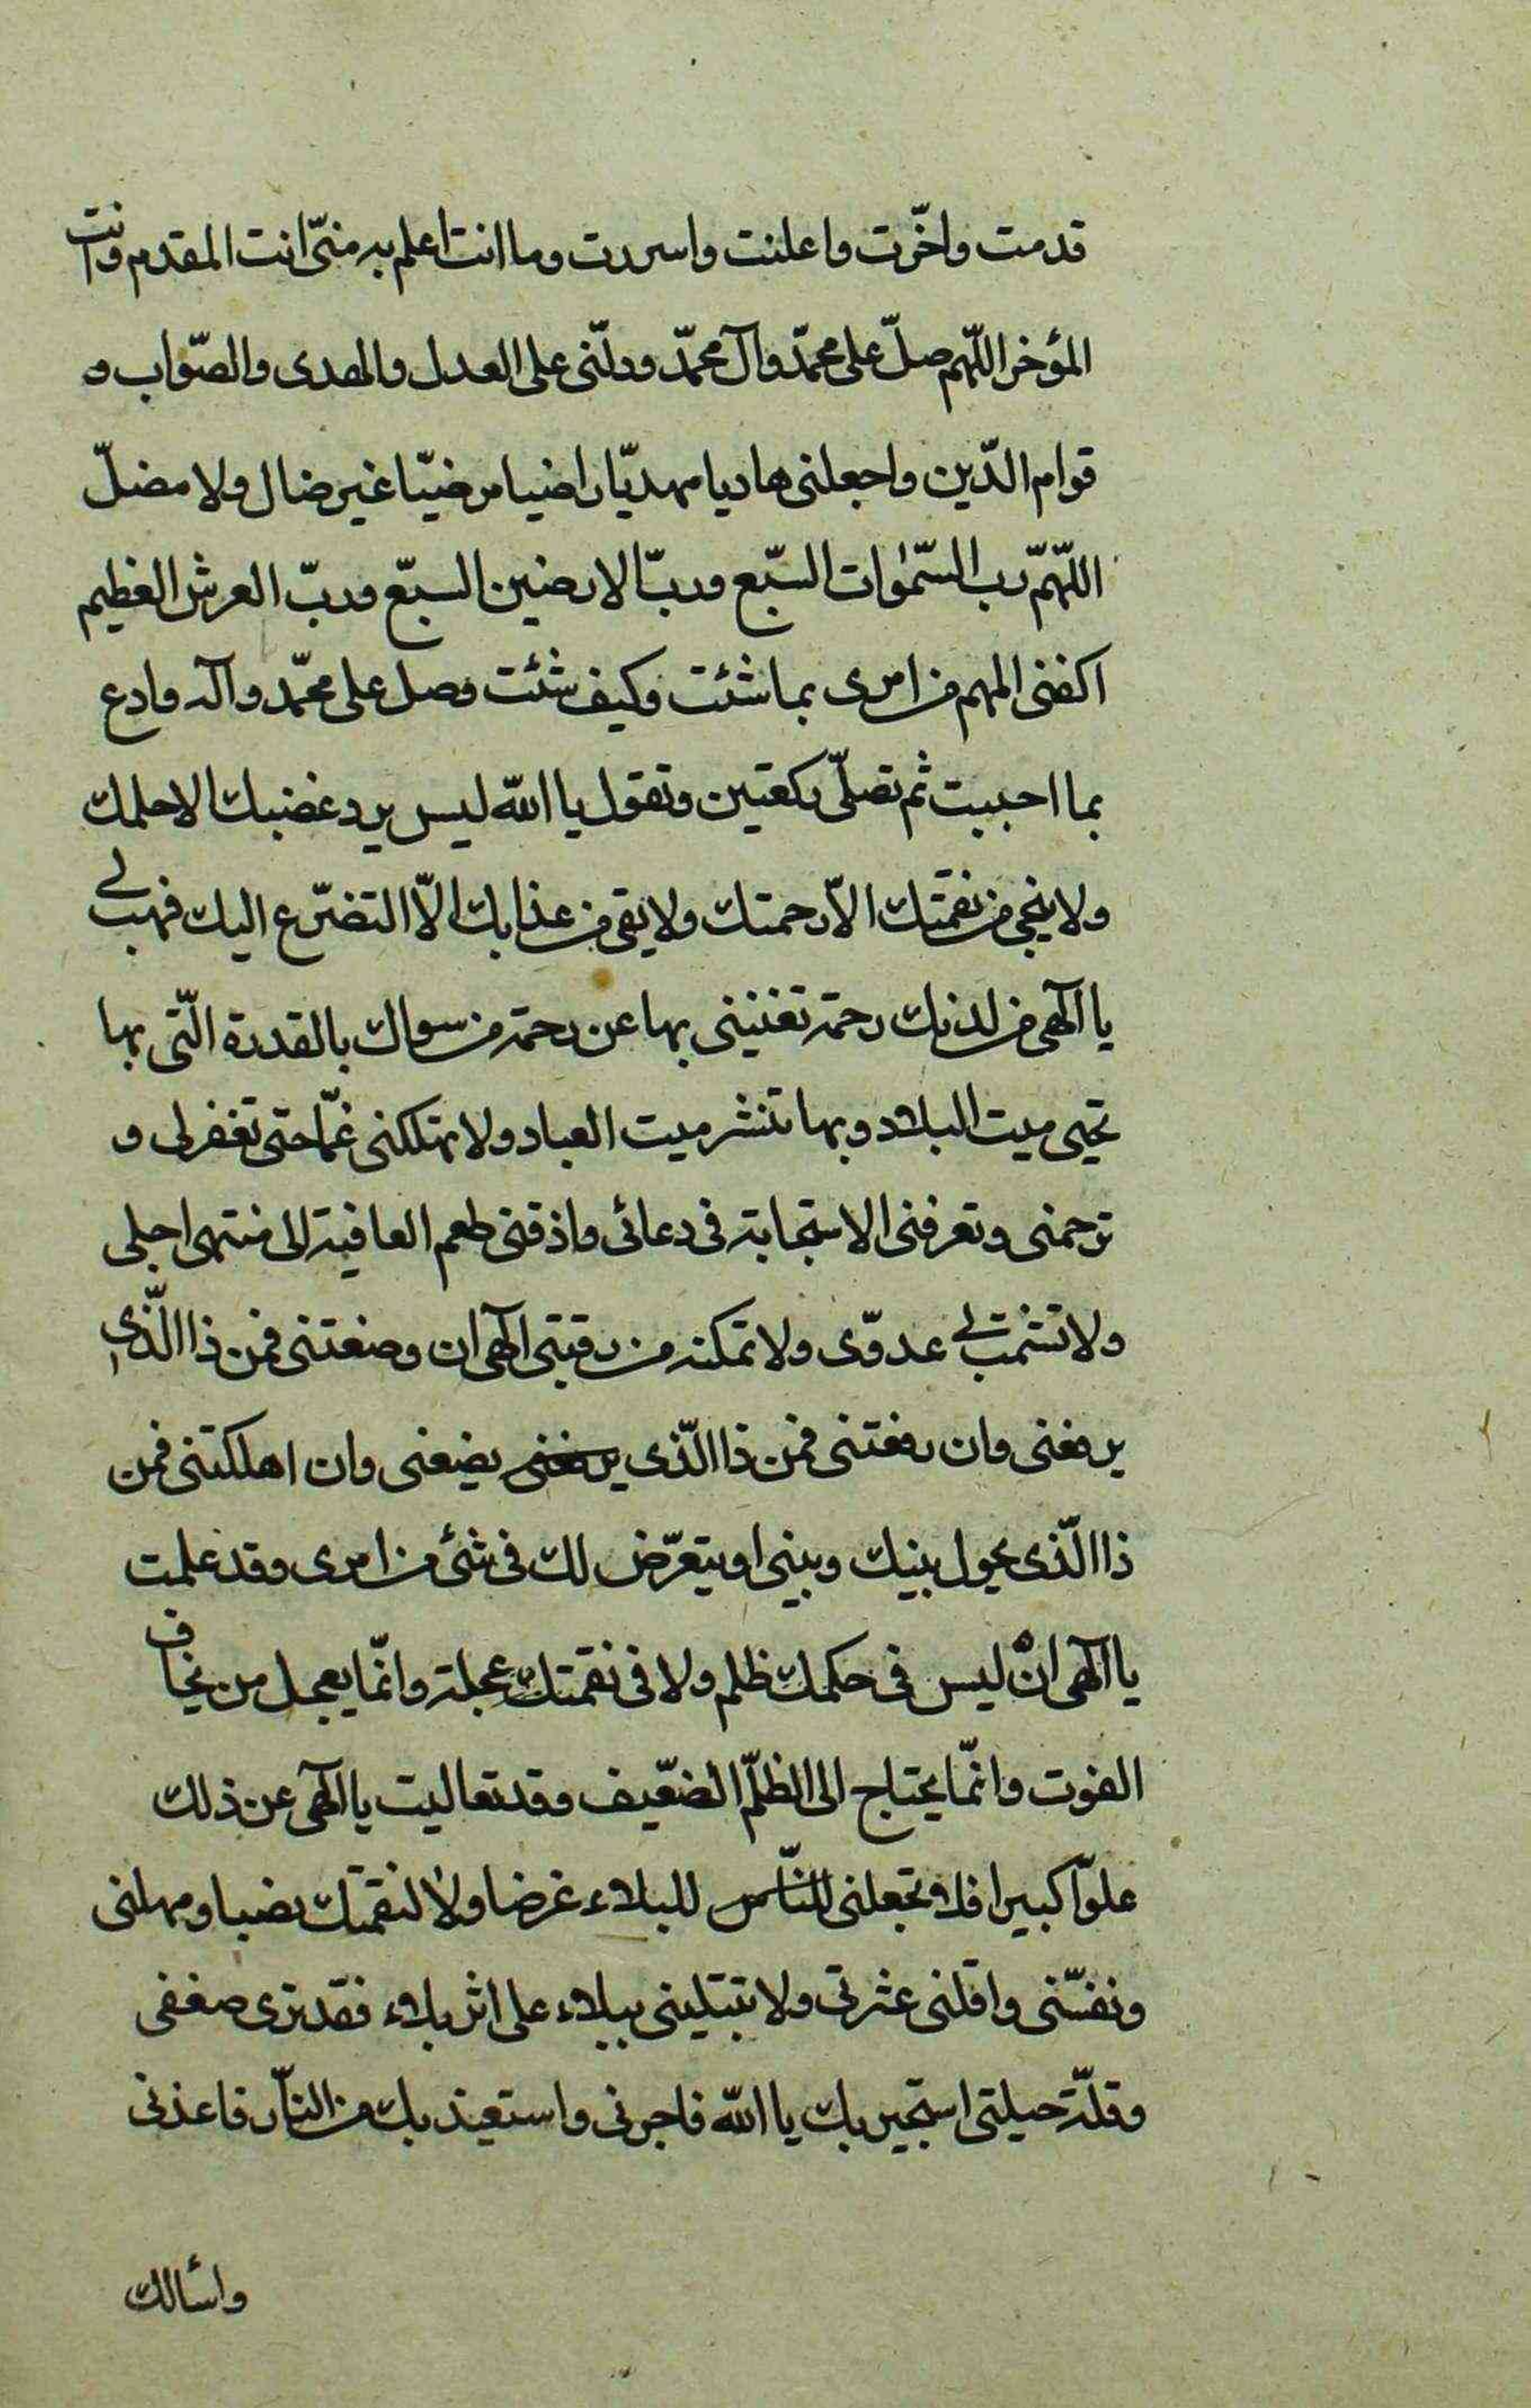 قدمت واخّرت واعلنت واسررت وما انت اعلم به منّى انت المقدم وانت
المؤخر اللّهم صلّ على محمّد وآل محمّد ودلّنى على العدل والهدى والصّواب و
قوام الدّين واجعلنى هاديا مهديّا راضيا مرضيّا غير ضال ولا مضلّ
اللّهمّ رب السّمٰوات السّبع وربّ الارضين السبّع وربّ العرش العظيم
اكفنى المهم من امرى بما شئت وكيف شئت وصل على محمّد وآله وادع
بما احببت ثم تصلّى ركعتين وتقول يا اللّه ليس يرد غضبك الا حلمك
ولا ينجى من نقمتك الاّ رحمتك ولا يقى من عذابك الاّ التضرّع اليك فهب لى
يا آلهى من لدنك رحمة تغنينى بها عن رحمة من سواك بالقدرة الّتى بها
تحيى ميت البلاد وبها تنشر ميت العباد ولا تهلكنى غمّا حتى تغفر لى و
ترحمنى وتعرفنى الاستجابة فى دعائى واذقنى طعم العافية الى منتهى اجلى
ولا تشمت بى عدوّى ولا تمكنه من رقبتى آلهى ان وضعتنى فمن ذا الّذى
يرفعنى وان رفعتنى فمن ذا الّذى يرفعنى يضيعنى وان اهلكتنى فمن
ذا الّذى يحول بينك وبينى او يتعرّض لك فى شئ من امرى وقد علمت
يا آلهى انه ليس فى حكمك ظلم ولا فى نقمتك عجلة وانّما يعجل من يخاف
الفوت وانّما يحتاج الى الظلّم الضعّيف وقد تعاليت يا آلهى عن ذلك
علوّا كبيرا فلا تجعلنى للنّاس للبلاء غرضا ولا لنقمتك نصبا ومهلنى
ونفسّنى واقلنى عثرتى ولا تبتلينى ببلاء على اثر بلاء فقد ترى ضعفى
وقلّة حيلتى استجير بك يا اللّه فاجرنى واستعيذ بك من النّار فاعذنى
واسئالك